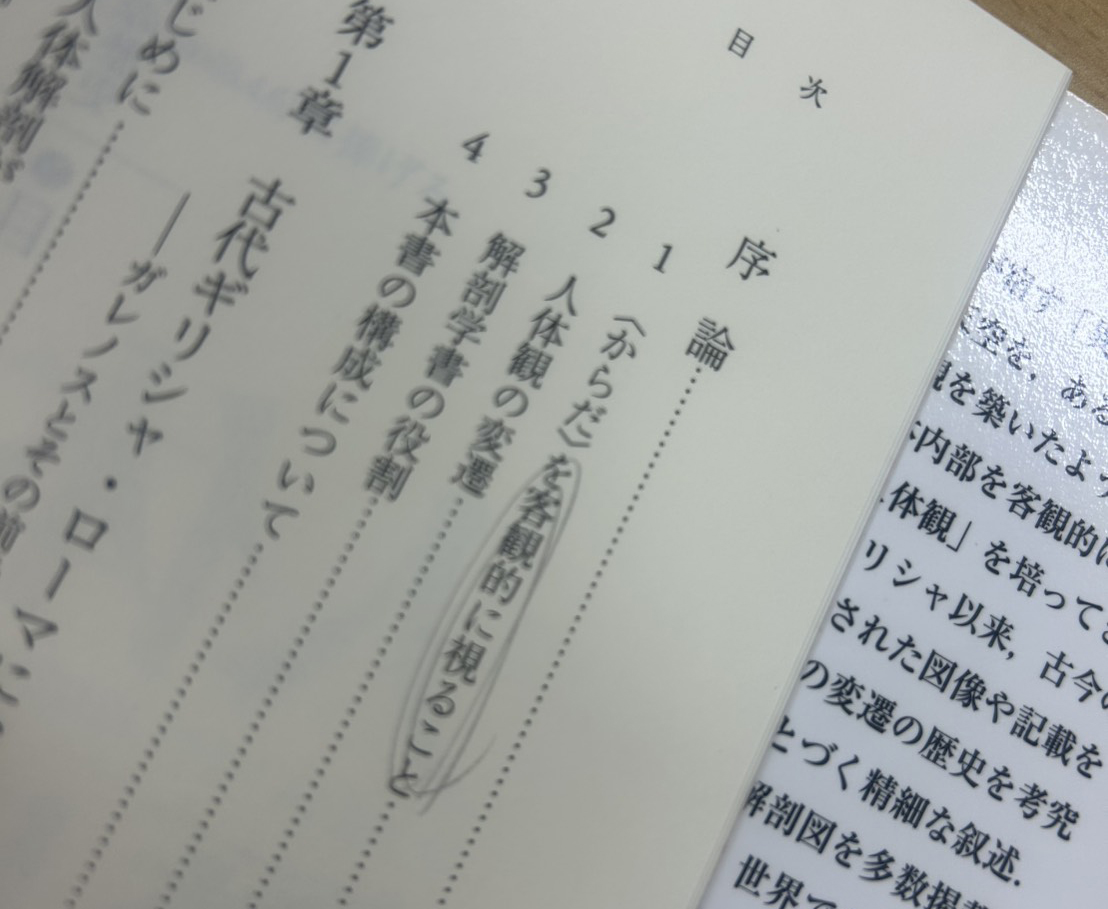 目次
序論
1 〈からだ〉を客観的に視ること
2 人体観の変遷
3 解剖学書の役割
4 本書の構成について
第1章 古代ギリシャ・ローマに
――ガレノスとその前
じめに
人体解剖が
出す「
空を,ある
を築いたよう
内部を客観的に
体観」を培ってき
リシャ以来,古今の
された図像や記載を
の変遷の歴史を考究
とづく精細な叙述.
解剖図を多数掲
世界で